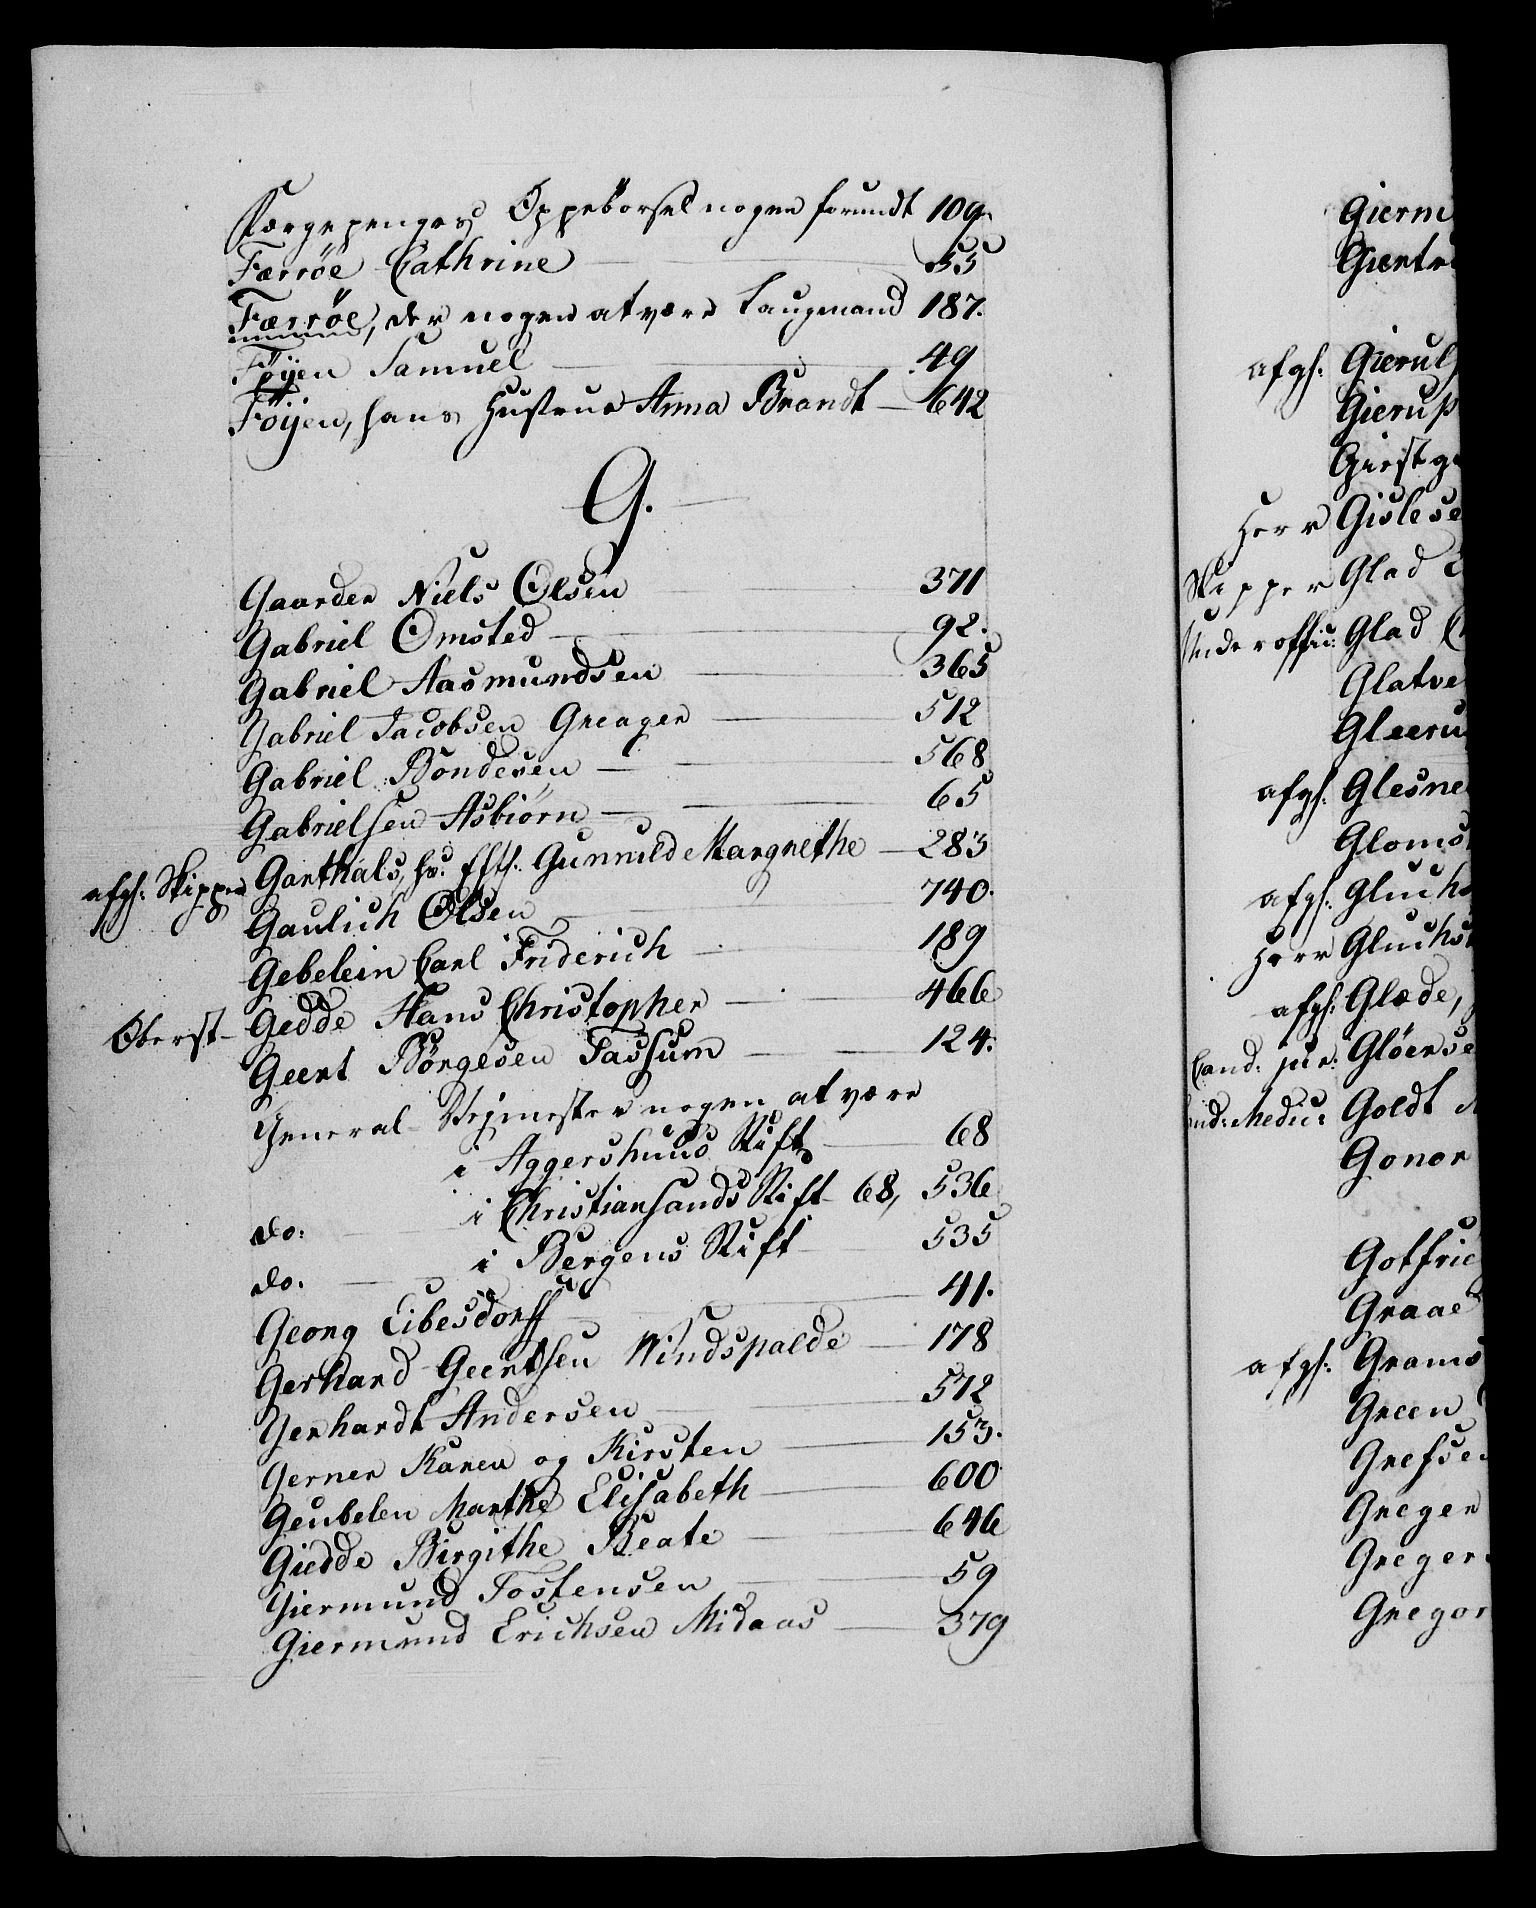 Færgepenges Oppebörsel nogen forundt 109.
Færröe Cathrine 55
Færröe, der nogen at være Laugmand 187.
Föyen Samuel 49
Föijen, hans Hustrue Anna Brandt 642
G.
Gaarder Niels Olsen 371
Gabriel Omsted 92.
Gabriel Aasmundsen 365
Gabriel Jacobsen Greager 512
Gabriel Bondesen 568
Gabrielsen Asbiörn 65
afgl: Skipper Garthals, hs: Eftl: Gunnild Margrethe 283
Gaulich Olsen 740.
Gebelein Carl Friderich 189
Oberst Gedde Hans Christopher 466
Geert Börgesen Fassum 124.
General Vejmester nogen at være
i Aggershuus Stift 68
do: i Christiansands Stift 68, 536
do. i Bergens Stift 535
Georg Eibesdorff 41.
Gerhard Geertsen Windspalde 178
Gerhardt Andersen 572
Gerner Karen og Kirsten 153.
Geubelen Marthe Elisabeth 600
Giedde Birgithe Beate 646
Giermund Tostensen 59
Giermund Erichsen Midaas 379
Gierm
Giertr
afgl: Gierul
Gierup
Giestge
Herr Gislese
Skipper Glad
Underoffic: Glad
Glatve
Gleeru
afgl: Glesne
Gloms
afgl: Gluchs
Herr Gluchst
afgl: Glæde,
Cand: jur: Glöerse
nd: Medic: Goldt
Gonor
Gotfrie
Graae
afgl: Grams
Green
Grefse
Greger
Gregers
Gregor